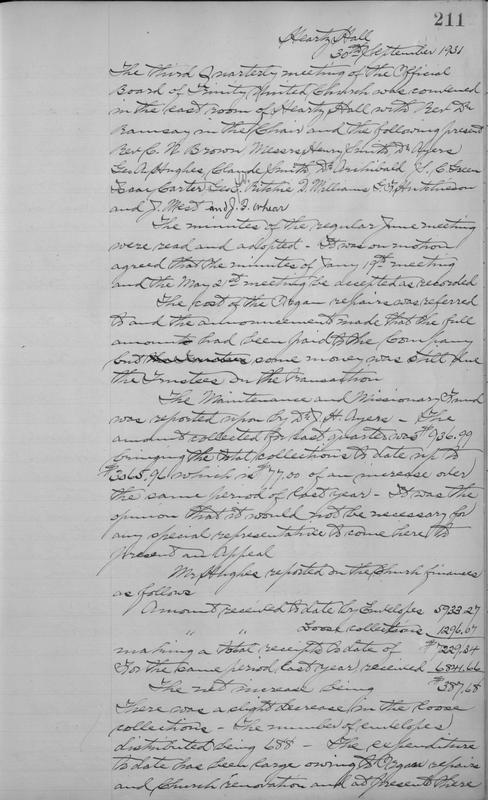 211
Heartz Hall
30th September 1931
The third Quarterly meeting of the Official
Board of Trinity United Church was convened
in the east room of Heartz Hall with Rev Dr
Ramsay in the Chair and the following present
Rev. C. N. Brown Messrs Henry Smith, Dr Ayers
Geo. A. Hughes, Claude Smith, Dr Archibald, J. C. Green
Isaac Carter, Geo. E. Ritchie D. Williams Hutchinson
and J. West and J. J. Whear
The minutes of the regular June meeting
were read and adopted - It was on motion
agreed that the minutes of Jany 19th meeting
and the May 21st meeting be accepted as recorded
The cost of the Organ repairs was referred
to and the announcement made that the full
amount had been paid to the Company
but some money was still due
the Trustees on the transaction
The Maintenance and Missionary Fund
was reported upon by Dr J. H. Ayers - The
amount collected for last quarter was $936.99
bringing the total collections to date up to
$2365.96 which is $77.00 of an increase over
the same period of last year - It was the
opinion that it would not be necessary for
any special representative to come here to
present an Appeal
Mr Hughes reported on the Church finances
as follows
Amount received to date by Envelopes 5933.27
" " Loose collections 1296.07
making a total receipts to date of $7229.34
For the same period last year received 6841.66
The net increase being $387.68
There was a slight decrease in the loose
collections - The number of envelopes
distributed being 688 - The expenditure
to date has been large owing to Organ repairs
and Church renovation and at present there